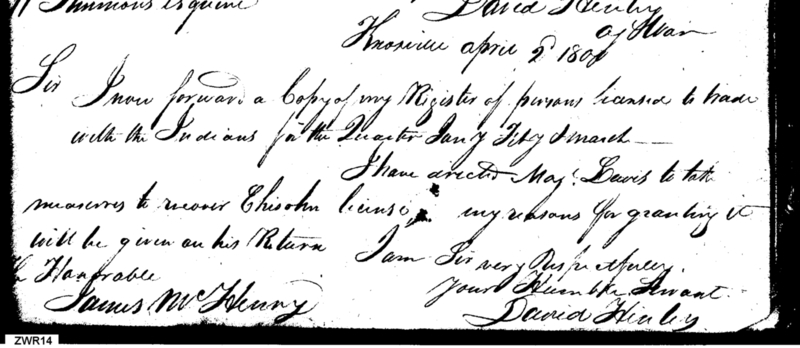 W Simmons esquire David Henley
Ag War
Knoxville april 2d 1800
Sir
I now forward a Copy of my Register of persons licensed to trade
with the Indians for the Quarter Jany Feby & march
I have directed Majr. Lewis to take
measures to recover Chisolm license, my reasons for granting it
will be given on his Return I am Sir
very Respectfully
The Honorable Your Humble Servant
James McHenry David Henley
ZWR14